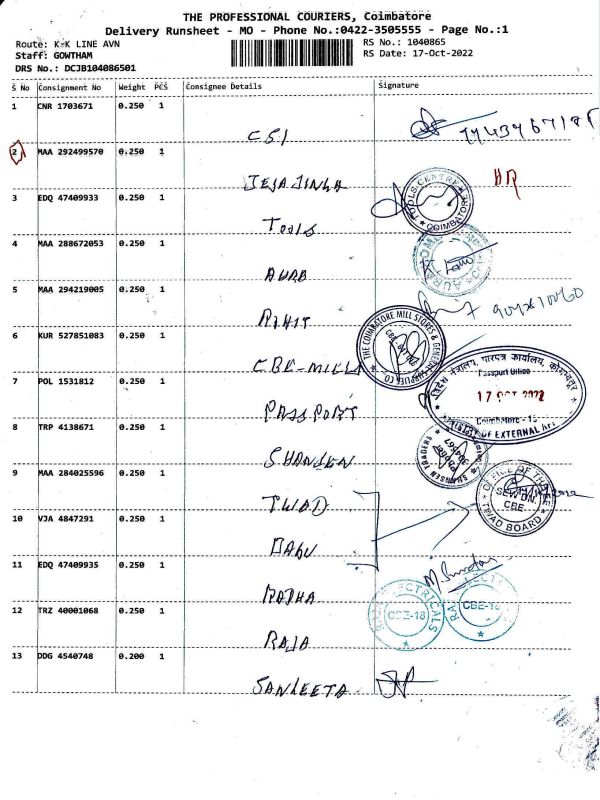 THE PROFESSIONAL COURIERS, Coimbatore
Delivery Runsheet - MO - Phone No.:0422-3505555 - Page No.:1
Route: K K LINE AVN
RS No.: 1040865
Staff: GOWTHAM
RS Date: 17-Oct-2022
DRS No.: DCJB104086501
S No Consignment No Weight PCS Consignee Details Signature
1 CNR 1703671 0.250 1
CSI
2 MAA 292499570 0.250 1
3 EDQ 47409933 0.250 1
TOOLS
TOOLS CENTRE COIMBATORE
4 MAA 288672053 0.250 1
5 MAA 294219005 0.250 1
THE COIMBATORE MILL STORES & GENERAL SUPPLIES CO.
6 KUR 527851083 0.250 1
CBE-MILL
7 POL 1531812 0.250 1
PASSPORT
Passport Office
17 OCT 2022
Coimbatore - 18
8 TRP 4138671 0.250 1
SHANSEN TRADERS
9 MAA 284025596 0.250 1
TWAD
OFFICE OF THE
CBE
TWAD BOARD
10 VJA 4847291 0.250 1
BABU
11 EDQ 47409935 0.250 1
RADHA
12 TRZ 40001068 0.250 1
RAJA
CBE-18
CBE-18
13 DDG 4540748 0.200 1
SANGEETA